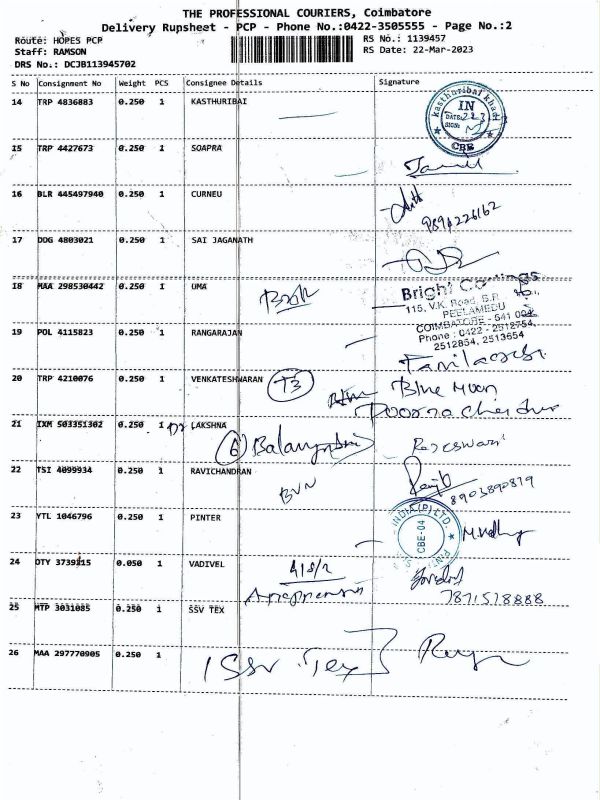 THE PROFESSIONAL COURIERS, Coimbatore
Delivery Rupsheet - PCP - Phone No.:0422-3505555 - Page No.:2
Route: HOPES PCP
RS No.: 1139457
Staff: RAMSON
RS Date: 22-Mar-2023
DRS No.: DCJB113945702
S No Consignment No Weight PCS Consignee Details Signature
14 TRP 4836883 0.250 1 KASTHURIBAI
IN
DATE:
SIGN:
CBE
15 TRP 4427673 0.250 1 SOAPRA
16 BLR 445497940 0.250 1 CURNEU
9894226162
17 DDG 4803021 0.250 1 SAI JAGANATH
18 MAA 298530442 0.250 1 UMA
Bright Coatings
115, V.K. Road, S.R.
PEELAMEDU
COIMBATORE - 641 004
Phone : 0422 - 2512754,
2512854, 2513654
19 POL 4115823 0.250 1 RANGARAJAN
Tamilarasi
20 TRP 4210076 0.250 1 VENKATESHWARAN T3
Blue Moon
Poorna Chander
21 IXM 503351302 0.250 1 Dr LAKSHNA
Rajeswari
22 TSI 4099934 0.250 1 RAVICHANDRAN
BVN
8903890819
23 YTL 1046796 0.250 1 PINTER
INDIA (P) LTD.
CBE-04
24 OTY 3739215 0.050 1 VADIVEL
7871578888
25 MTP 3031085 0.250 1 SSV TEX
26 MAA 297770905 0.250 1
SSV Tex